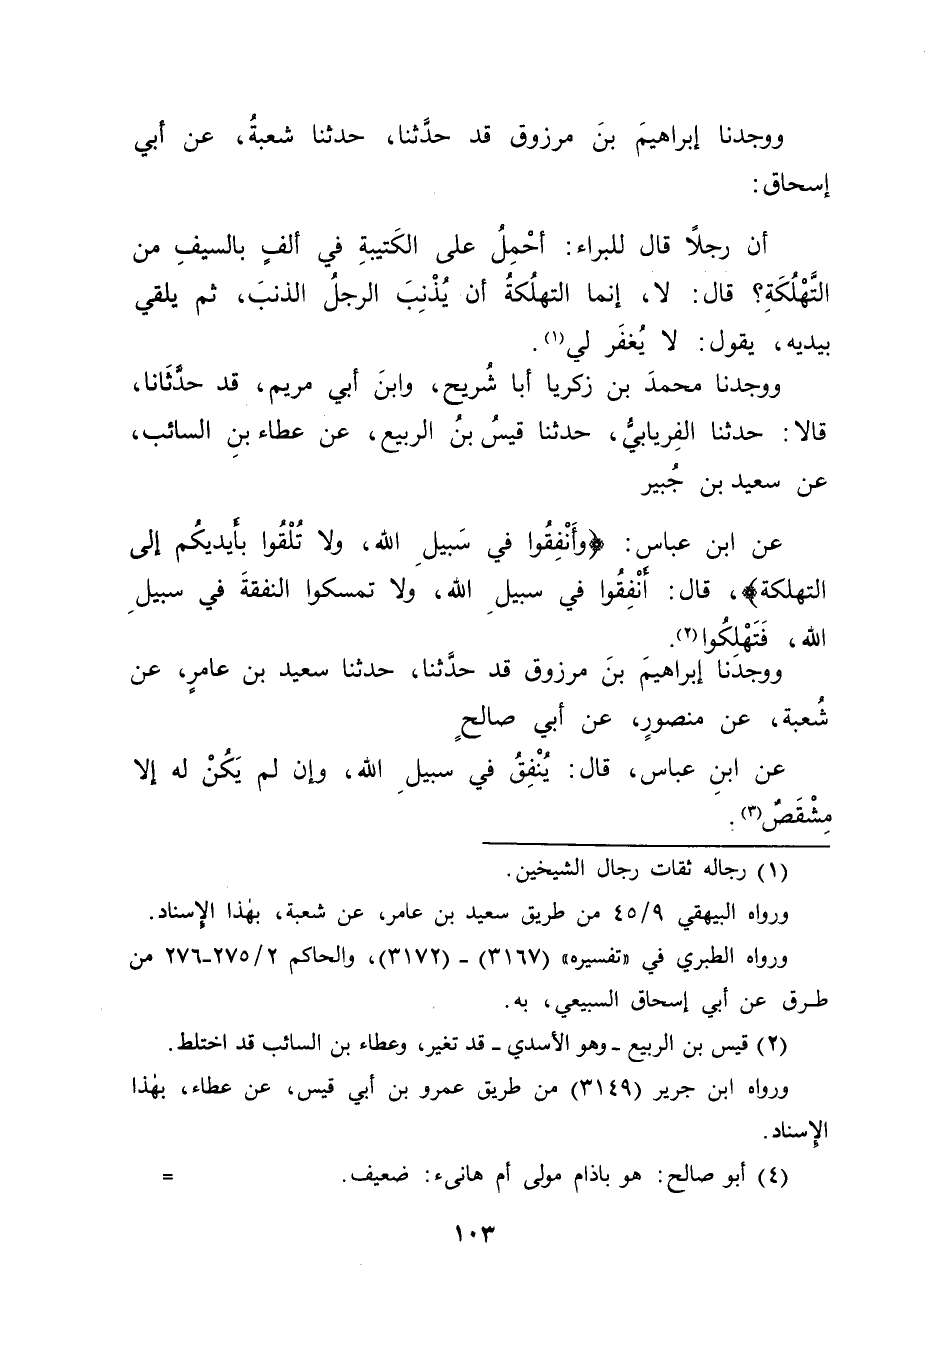 ووجدنا إبراهيمَ بنَ مرزوق قد حدَّثنا، حدثنا شعبةُ، عن أبي
إسحاق:
أن رجلًا قال للبراء: أحْمِلُ على الكَتيبةِ في ألفٍ بالسيفِ من
التَّهْلُكَةِ؟ قال: لا، إنما التهلُكةُ أن يُذْنِبَ الرجلُ الذنبَ، ثم يلقي
بيديه، يقول: لا يُغفَر لي(١).
ووجدنا محمدَ بن زكريا أبا شُريح، وابنَ أبي مريم، قد حدَّثَانا،
قالا: حدثنا الفِريابيُّ، حدثنا قيسُ بنُ الربيع، عن عطاء بنِ السائب،
عن سعيد بن جُبير
عن ابن عباس: ﴿وأَنْفِقُوا في سَبيلِ الله، ولا تُلْقُوا بأَيديكُم إلى
التهلكة﴾، قال: أَنْفِقُوا في سبيلِ الله، ولا تمسكوا النفقةَ في سبيلِ
الله، فَتَهْلِكُوا(٢).
ووجدَنا إبراهيمَ بنَ مرزوق قد حدَّثنا، حدثنا سعيد بن عامرٍ، عن
شُعبة، عن منصورٍ، عن أبي صالحٍ
عن ابنِ عباس، قال: يُنْفِقُ في سبيلِ الله، وإن لم يَكُنْ له إلا
مِشْقَصٌ(٣).
(١) رجاله ثقات رجال الشيخين.
ورواه البيهقي ٤٥/٩ من طريق سعيد بن عامر، عن شعبة، بهٰذا الإِسناد.
ورواه الطبري في «تفسيره» (٣١٦٧) - (٣١٧٢)، والحاكم ٢٧٥/٢-٢٧٦ من
طرق عن أبي إسحاق السبيعي، به.
(٢) قيس بن الربيع - وهو الأسدي - قد تغير، وعطاء بن السائب قد اختلط.
ورواه ابن جرير (٣١٤٩) من طريق عمرو بن أبي قيس، عن عطاء، بهٰذا
الإِسناد.
(٤) أبو صالح: هو باذام مولى أم هانىء: ضعيف. =
١٠٣